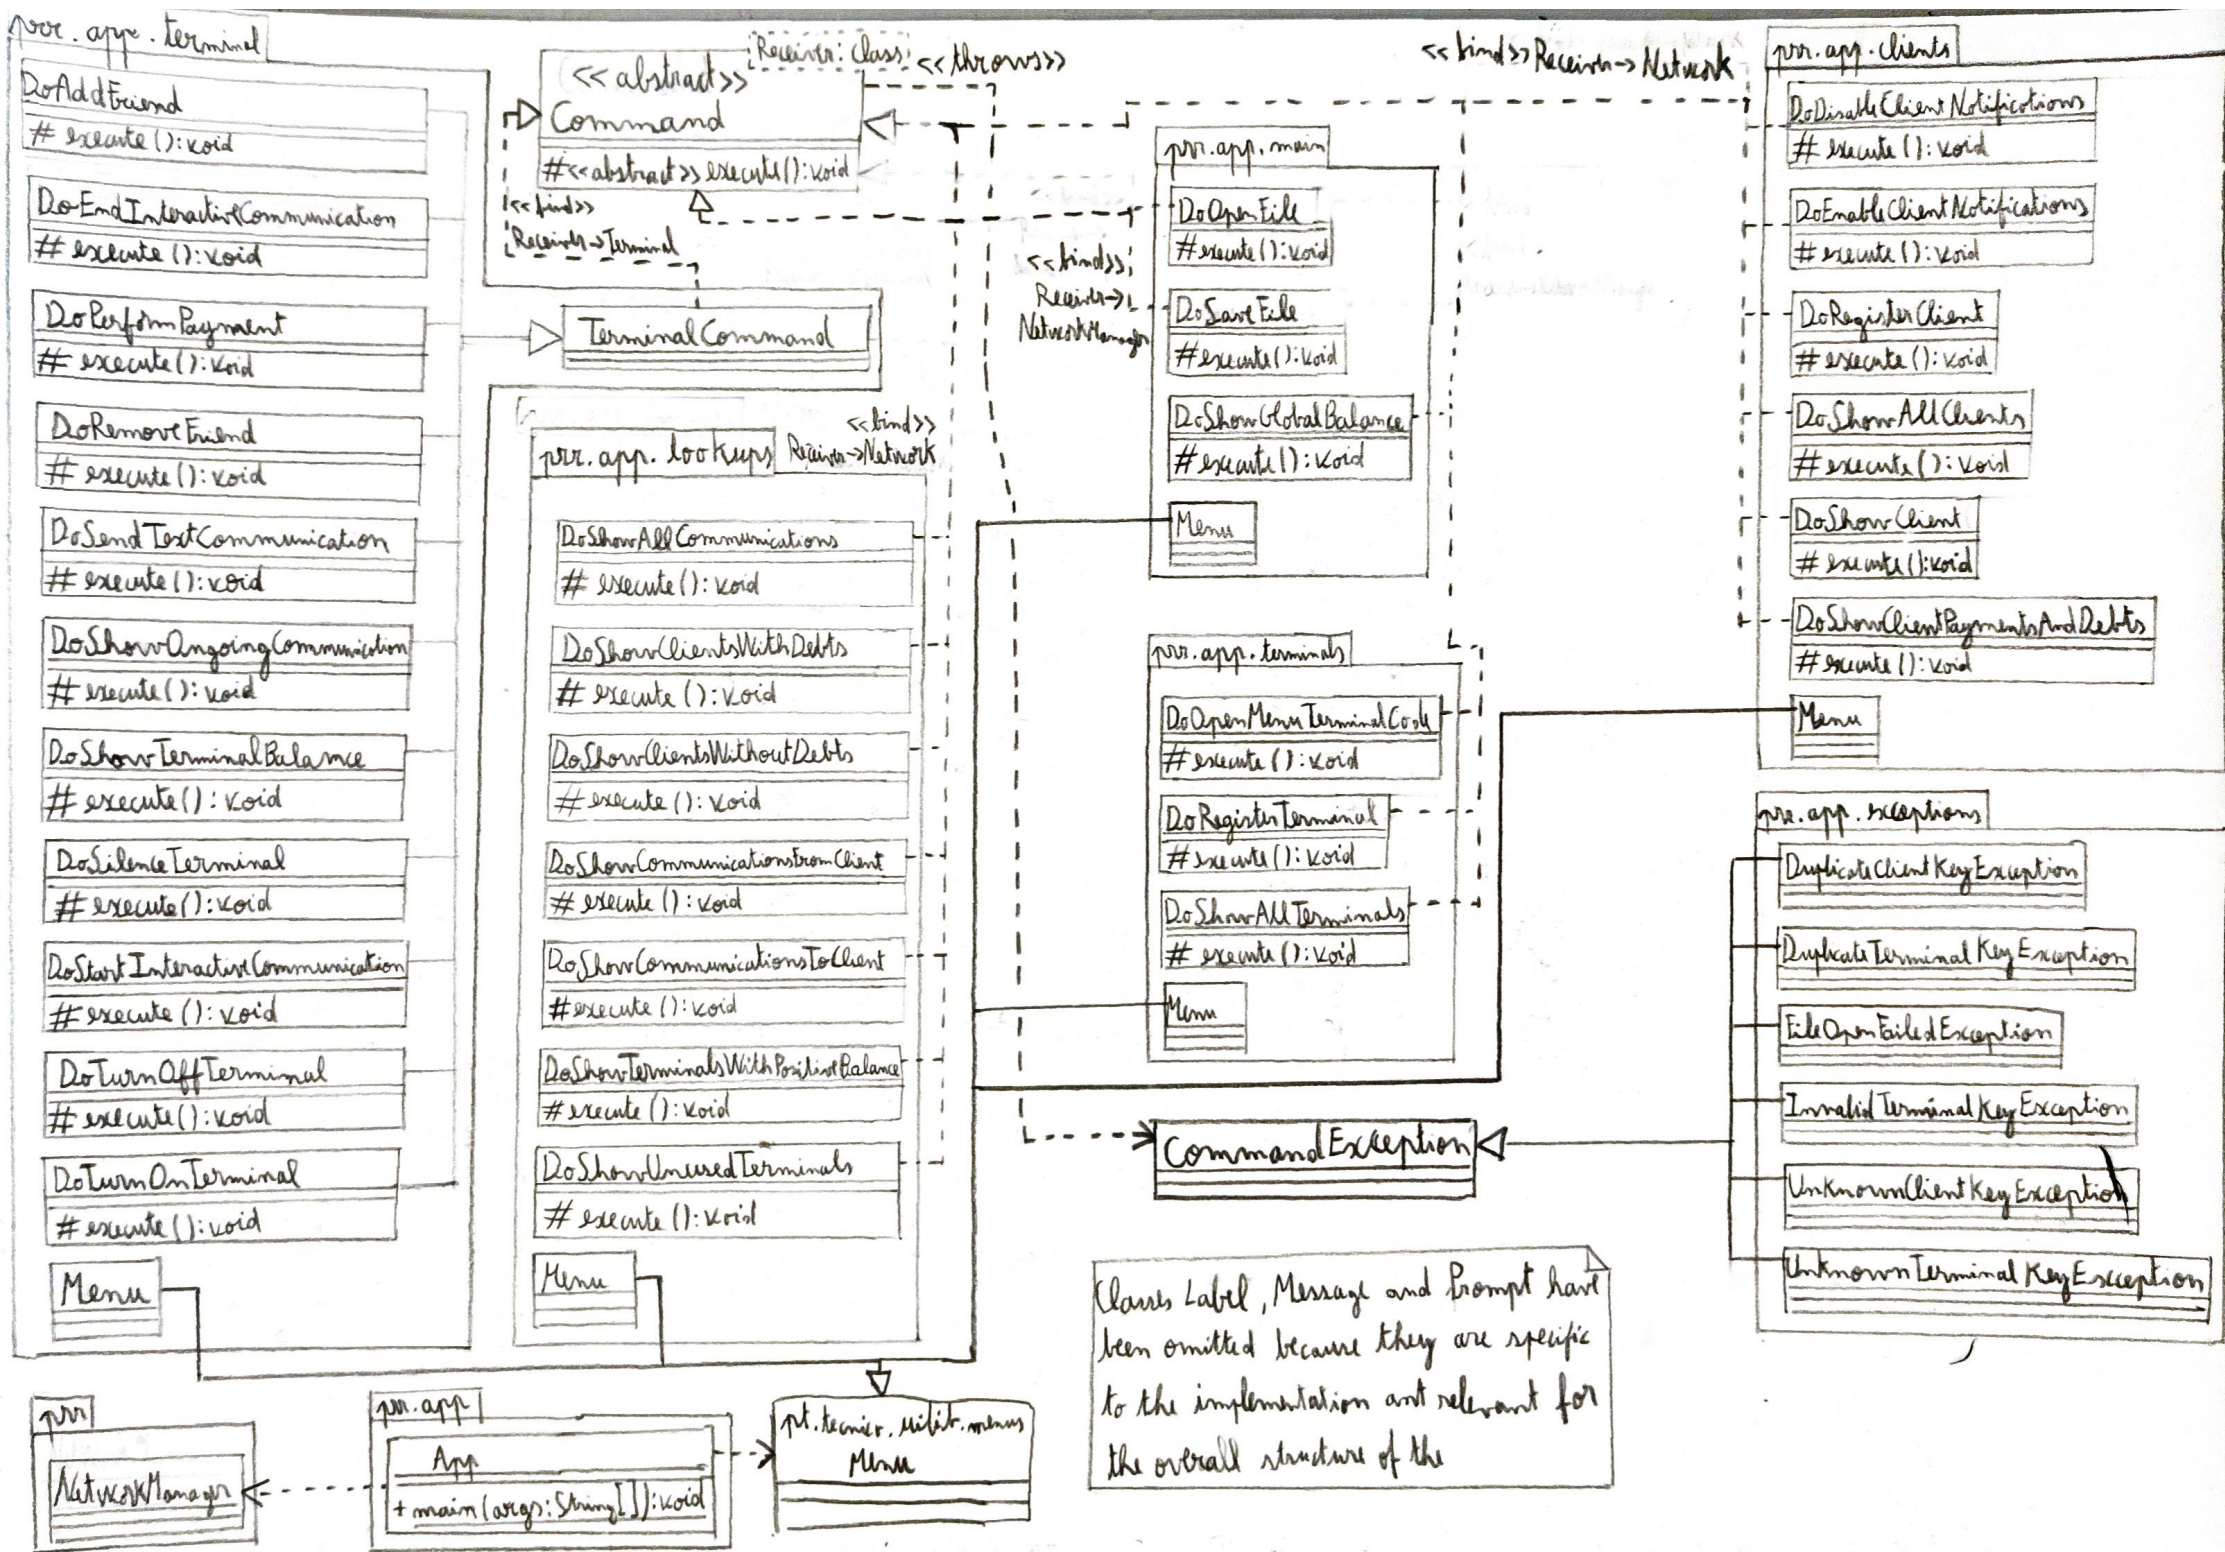 prr.app.terminal
DoAddFriend
# execute(): void
DoEndInteractiveCommunication
# execute(): void
DoPerformPayment
# execute(): void
DoRemoveFriend
# execute(): void
DoSendTextCommunication
# execute(): void
DoShowOngoingCommunication
# execute(): void
DoShowTerminalBalance
# execute(): void
DoSilenceTerminal
# execute(): void
DoStartInteractiveCommunication
# execute(): void
DoTurnOffTerminal
# execute(): void
DoTurnOnTerminal
# execute(): void
Menu
TerminalCommand
Receiver: Class
<<abstract>>
Command
#<<abstract>> execute(): void
<<throws>>
<<bind>>
Receiver->Terminal
<<bind>>
Receiver->
NetworkManager
<<bind>> Receiver->Network
<<bind>>
Receiver->Network
prr.app.lookups
DoShowAllCommunications
# execute(): void
DoShowClientsWithDebts
# execute(): void
DoShowClientsWithoutDebts
# execute(): void
DoShowCommunicationsFromClient
# execute(): void
DoShowCommunicationsToClient
# execute(): void
DoShowTerminalsWithPositiveBalance
# execute(): void
DoShowUnusedTerminals
# execute(): void
Menu
prr.app.main
DoOpenFile
# execute(): void
DoSaveFile
# execute(): void
DoShowGlobalBalance
# execute(): void
Menu
prr.app.terminals
DoOpenMenuTerminalCosle
# execute(): void
DoRegisterTerminal
# execute(): void
DoShowAllTerminals
# execute(): void
Menu
prr.app.clients
DoDisableClientNotifications
# execute(): void
DoEnableClientNotifications
# execute(): void
DoRegisterClient
# execute(): void
DoShowAllClients
# execute(): void
DoShowClient
# execute(): void
DoShowClientPaymentsAndDebts
# execute(): void
Menu
prr.app.exceptions
DuplicateClientKeyException
DuplicateTerminalKeyException
FileOpenFailedException
InvalidTerminalKeyException
UnknownClientKeyException
UnknownTerminalKeyException
CommandException
Classes Label, Message and Prompt have
been omitted because they are specific
to the implementation ant relevant for
the overall structure of the
prr
NetworkManager
prr.app
App
+ main(args: String[]): void
pt.tecnico.uilib.menus
Menu